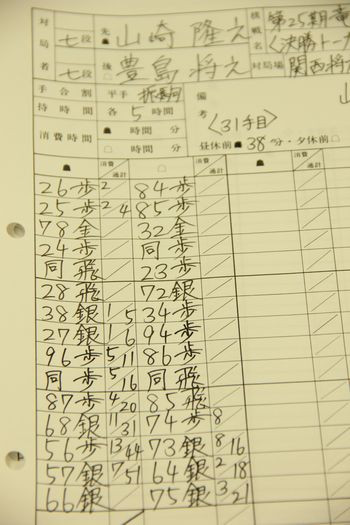 対局者 七段 先 山崎隆之 棋戦名 第25期竜
七段 後 豊島将之 〈決勝トー
対局場 関西将
手合割 平手 振駒
持時間 各 5 時間 備考 〈31手目〉
消費時間 時間 分 時間 分 昼休前 38分・夕休前
消費 通計 消費 通計 消費 通計
26歩 2 84歩
25歩 2 4 85歩
78金 32金
24歩 同歩
同飛 23歩
28飛 72銀
38銀 1 5 34歩
27銀 1 6 94歩
96歩 5 11 86歩
同歩 5 16 同飛
87歩 4 20 85飛
68銀 11 31 74歩 8
56歩 13 44 73銀 8 16
57銀 7 51 64銀 2 18
66銀 75銀 3 21